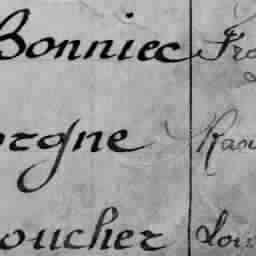 Bonniec Fra
orgne Raou
oucher Loui